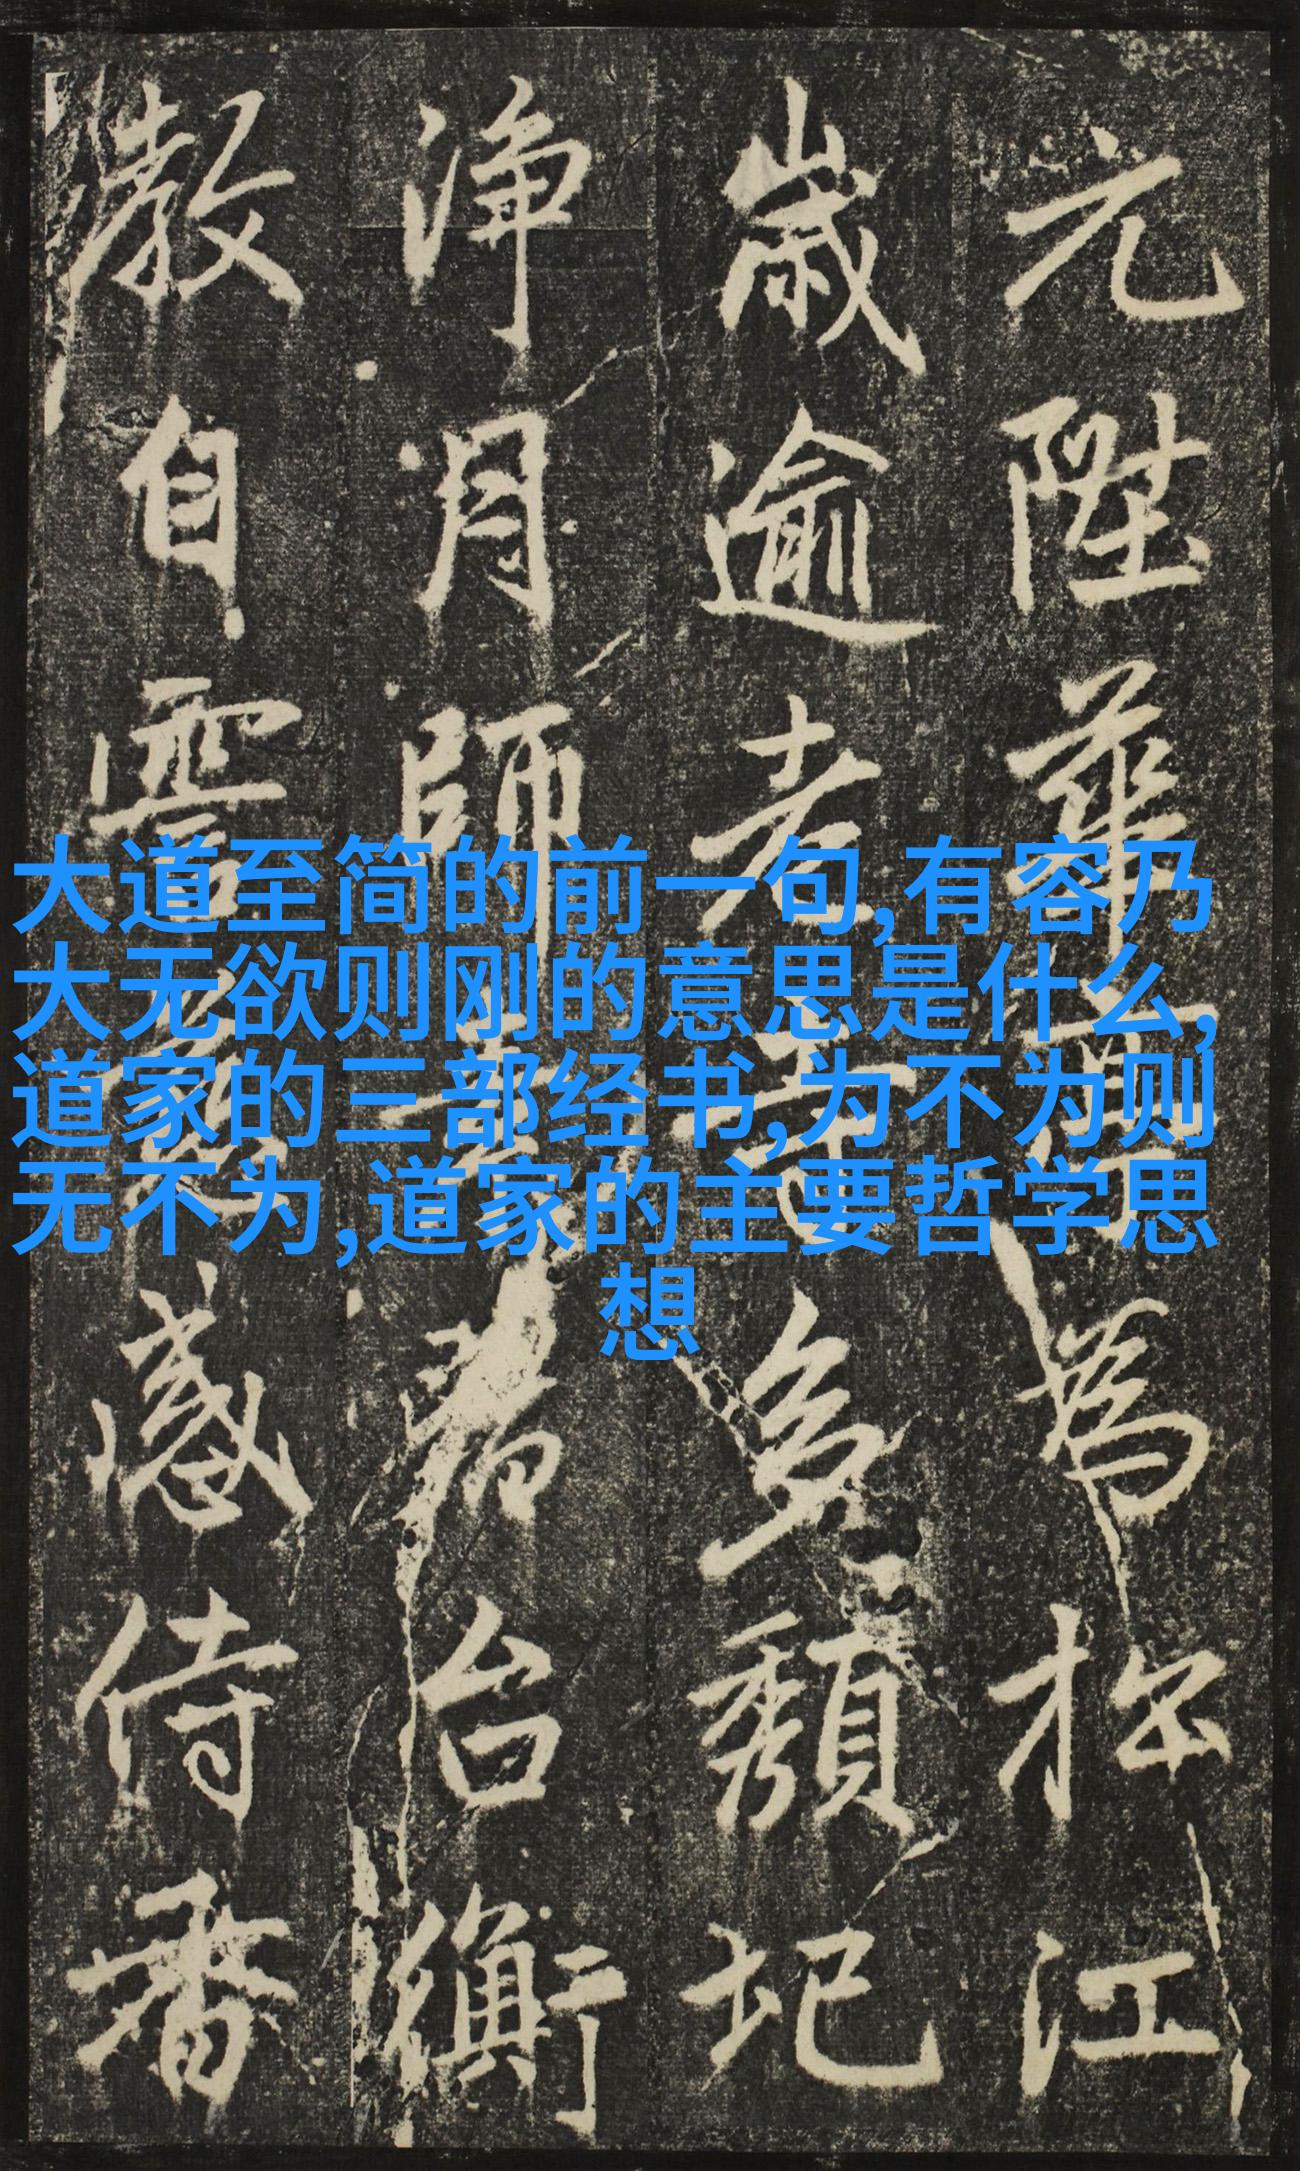 元陞華為松江
歲逾老多頹圯
淨月師台衡
教自感侍番
大道至简的前一句,有容乃
大无欲则刚的意思是什么,
道家的三部经书,为不为则
无不为,道家的主要哲学思
想